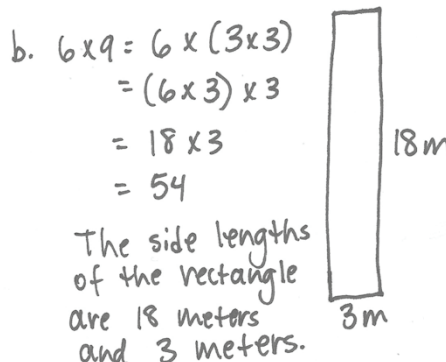 b. 6x9 = 6 x (3x3)
= (6x3) x 3
= 18 x3
= 54
18m
The side lengths
of the rectangle
are 18 meters
and 3 meters.
3m